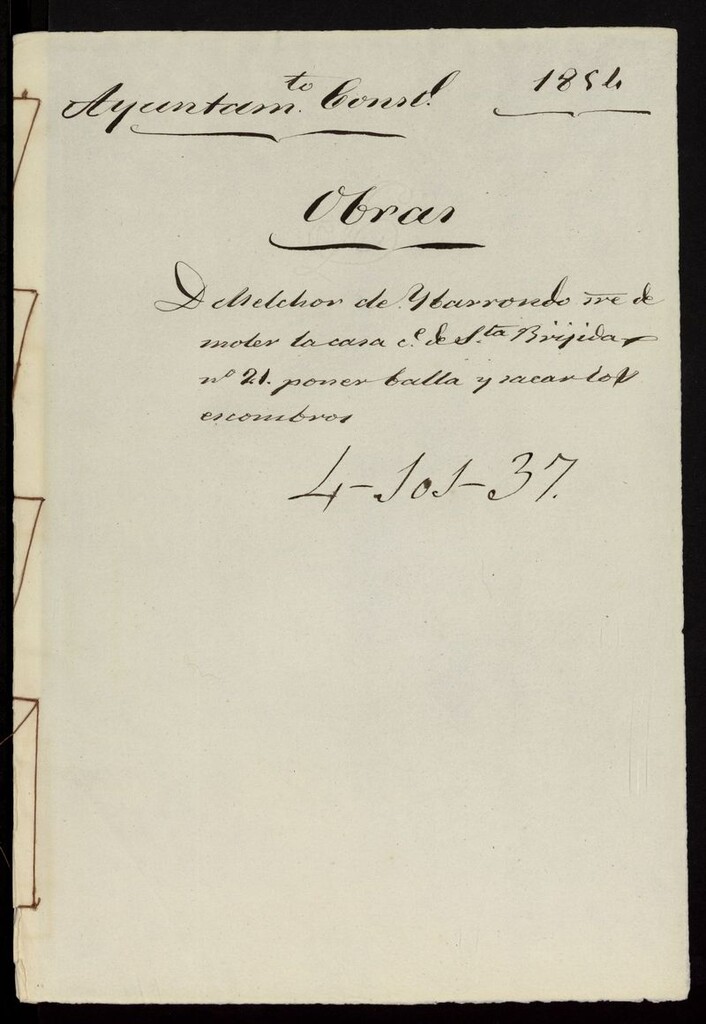 Ayuntam.to Consl. 1854
Obras
D Melchor de Ybarrondo sre de
moler la casa c.e de S.ta Brijida
nº 21. poner balla y sacar los
escombros
4-101-37.